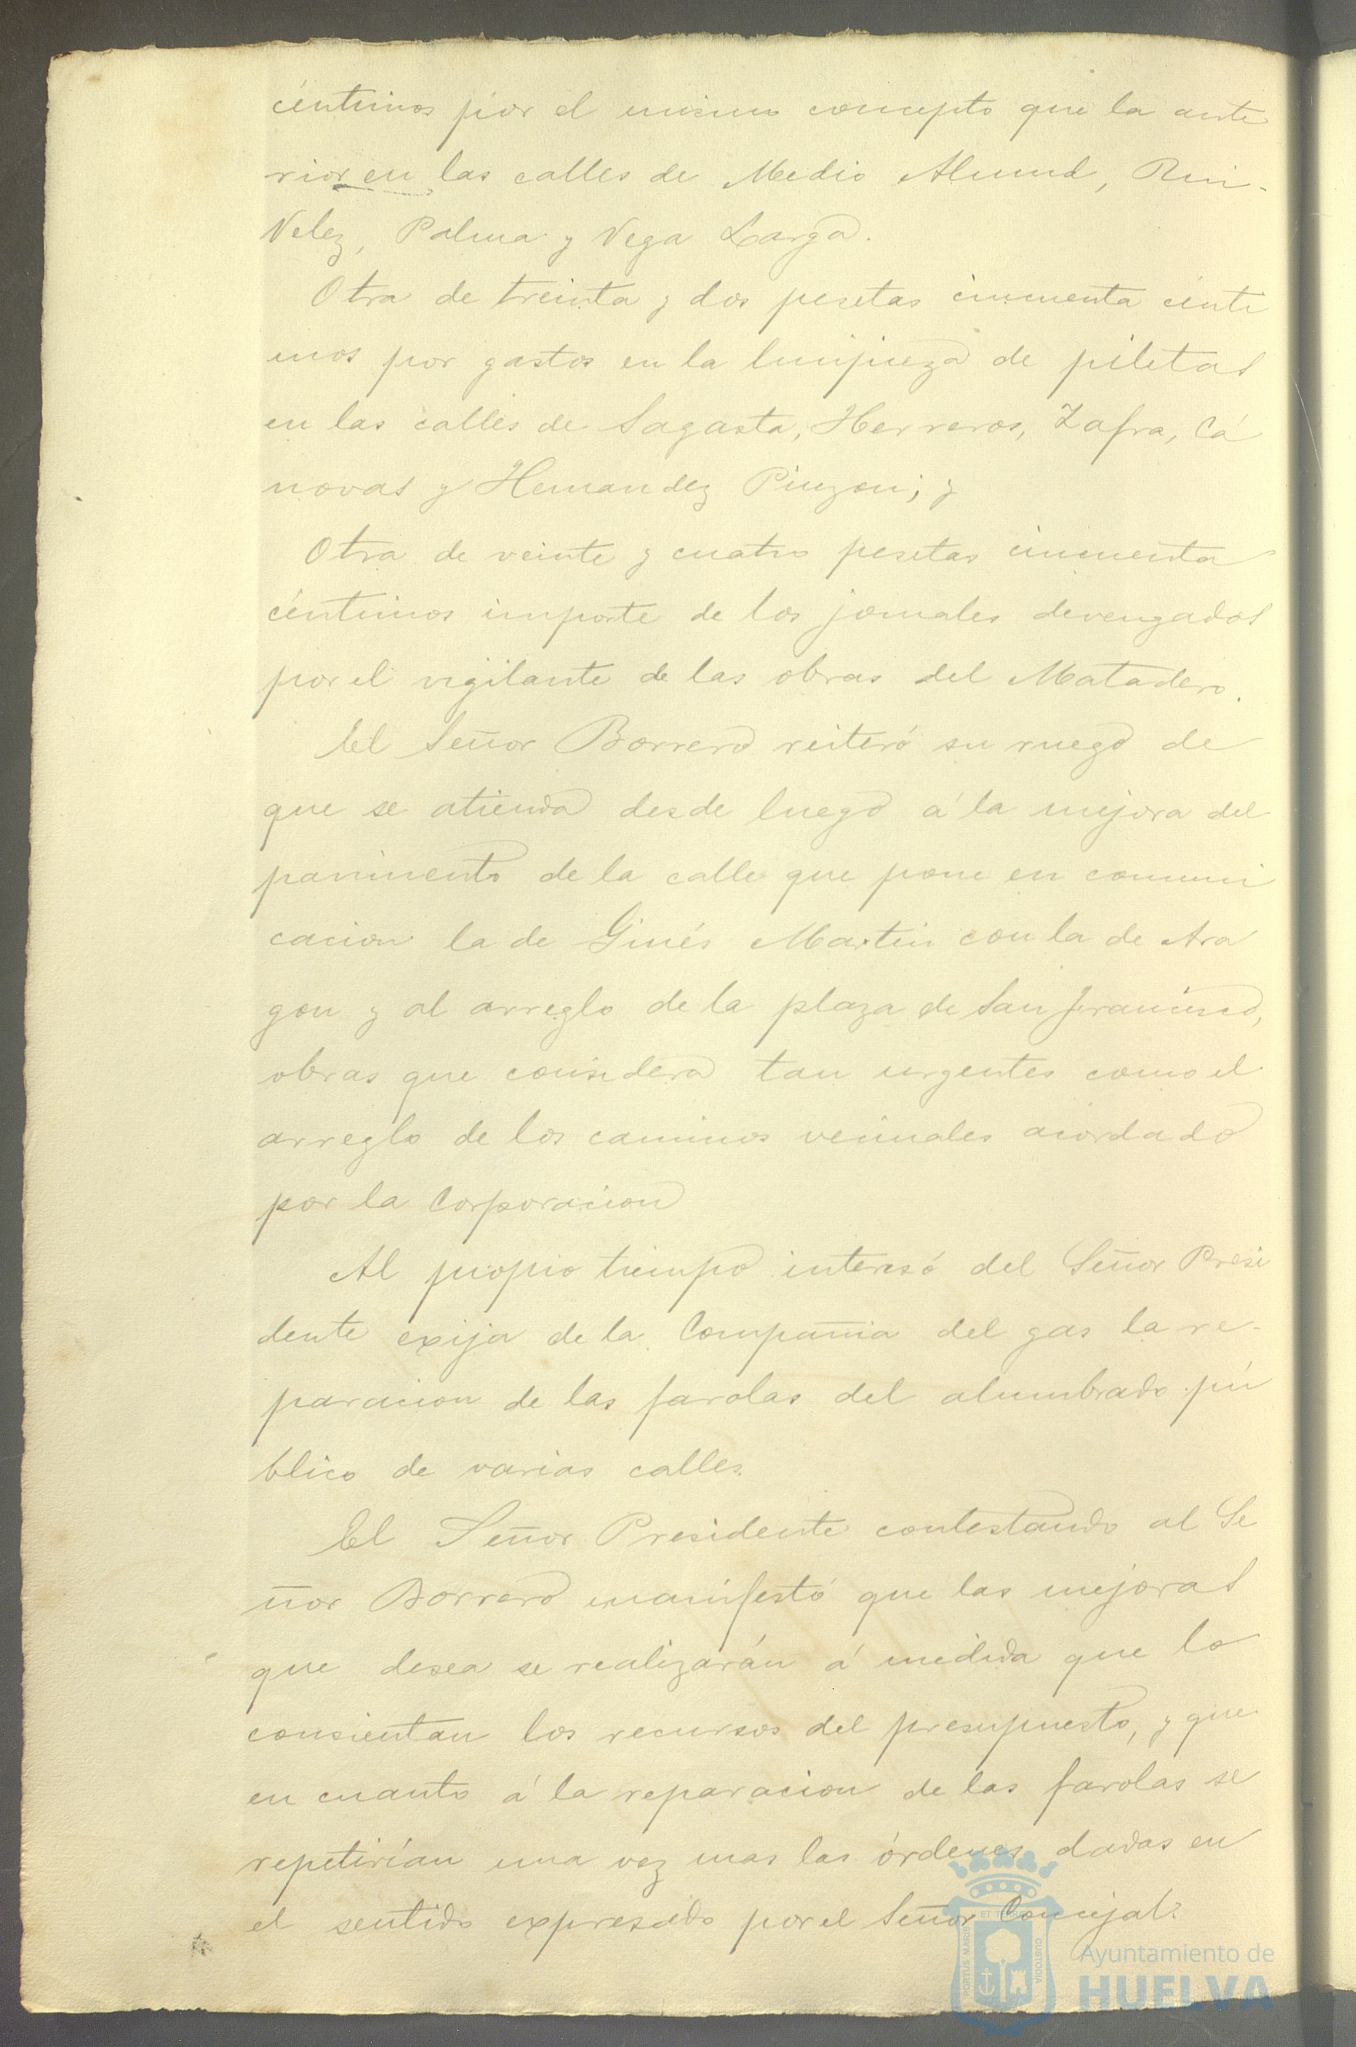 céntimos por el mismo concepto que la ante
rior en las calles de Medio Almud, Rui-
Velez, Palma y Vega Larga.
Otra de treinta y dos pesetas cincuenta cénti
mos por gastos en la limpieza de piletas
en las calles de Sagasta, Herreros, Zafra, Cá
novas y Hernandez Pinzon; y
Otra de veinte y cuatro pesetas cincuenta
céntimos importe de los jornales devengados
por el vigilante de las obras del Matadero.
El Señor Borrero reiteró su ruego de
que se atienda desde luego á la mejora del
pavimento de la calle que pone en comuni
cacion la de Ginés Martin con la de Ara
gon y al arreglo de la plaza de San Francisco,
obras que considera tan urgentes como el
arreglo de los caminos vecinales acordado
por la Corporacion
Al propio tiempo interesó del Señor Presi
dente exija de la Compañia del gas la re-
paracion de las farolas del alumbrado pú
blico de varias calles.
El Señor Presidente contestando al Se
ñor Borrero manifestó que las mejoras
que desea se realizarán á medida que lo
consientan los recursos del presupuesto, y que
en cuanto á la reparacion de las farolas se
repetirían una vez mas las órdenes dadas en
el sentido expresado por el Señor Concejal.
PORTUS MARIS ET TERRE CUSTODIA
Ayuntamiento de
HUELVA